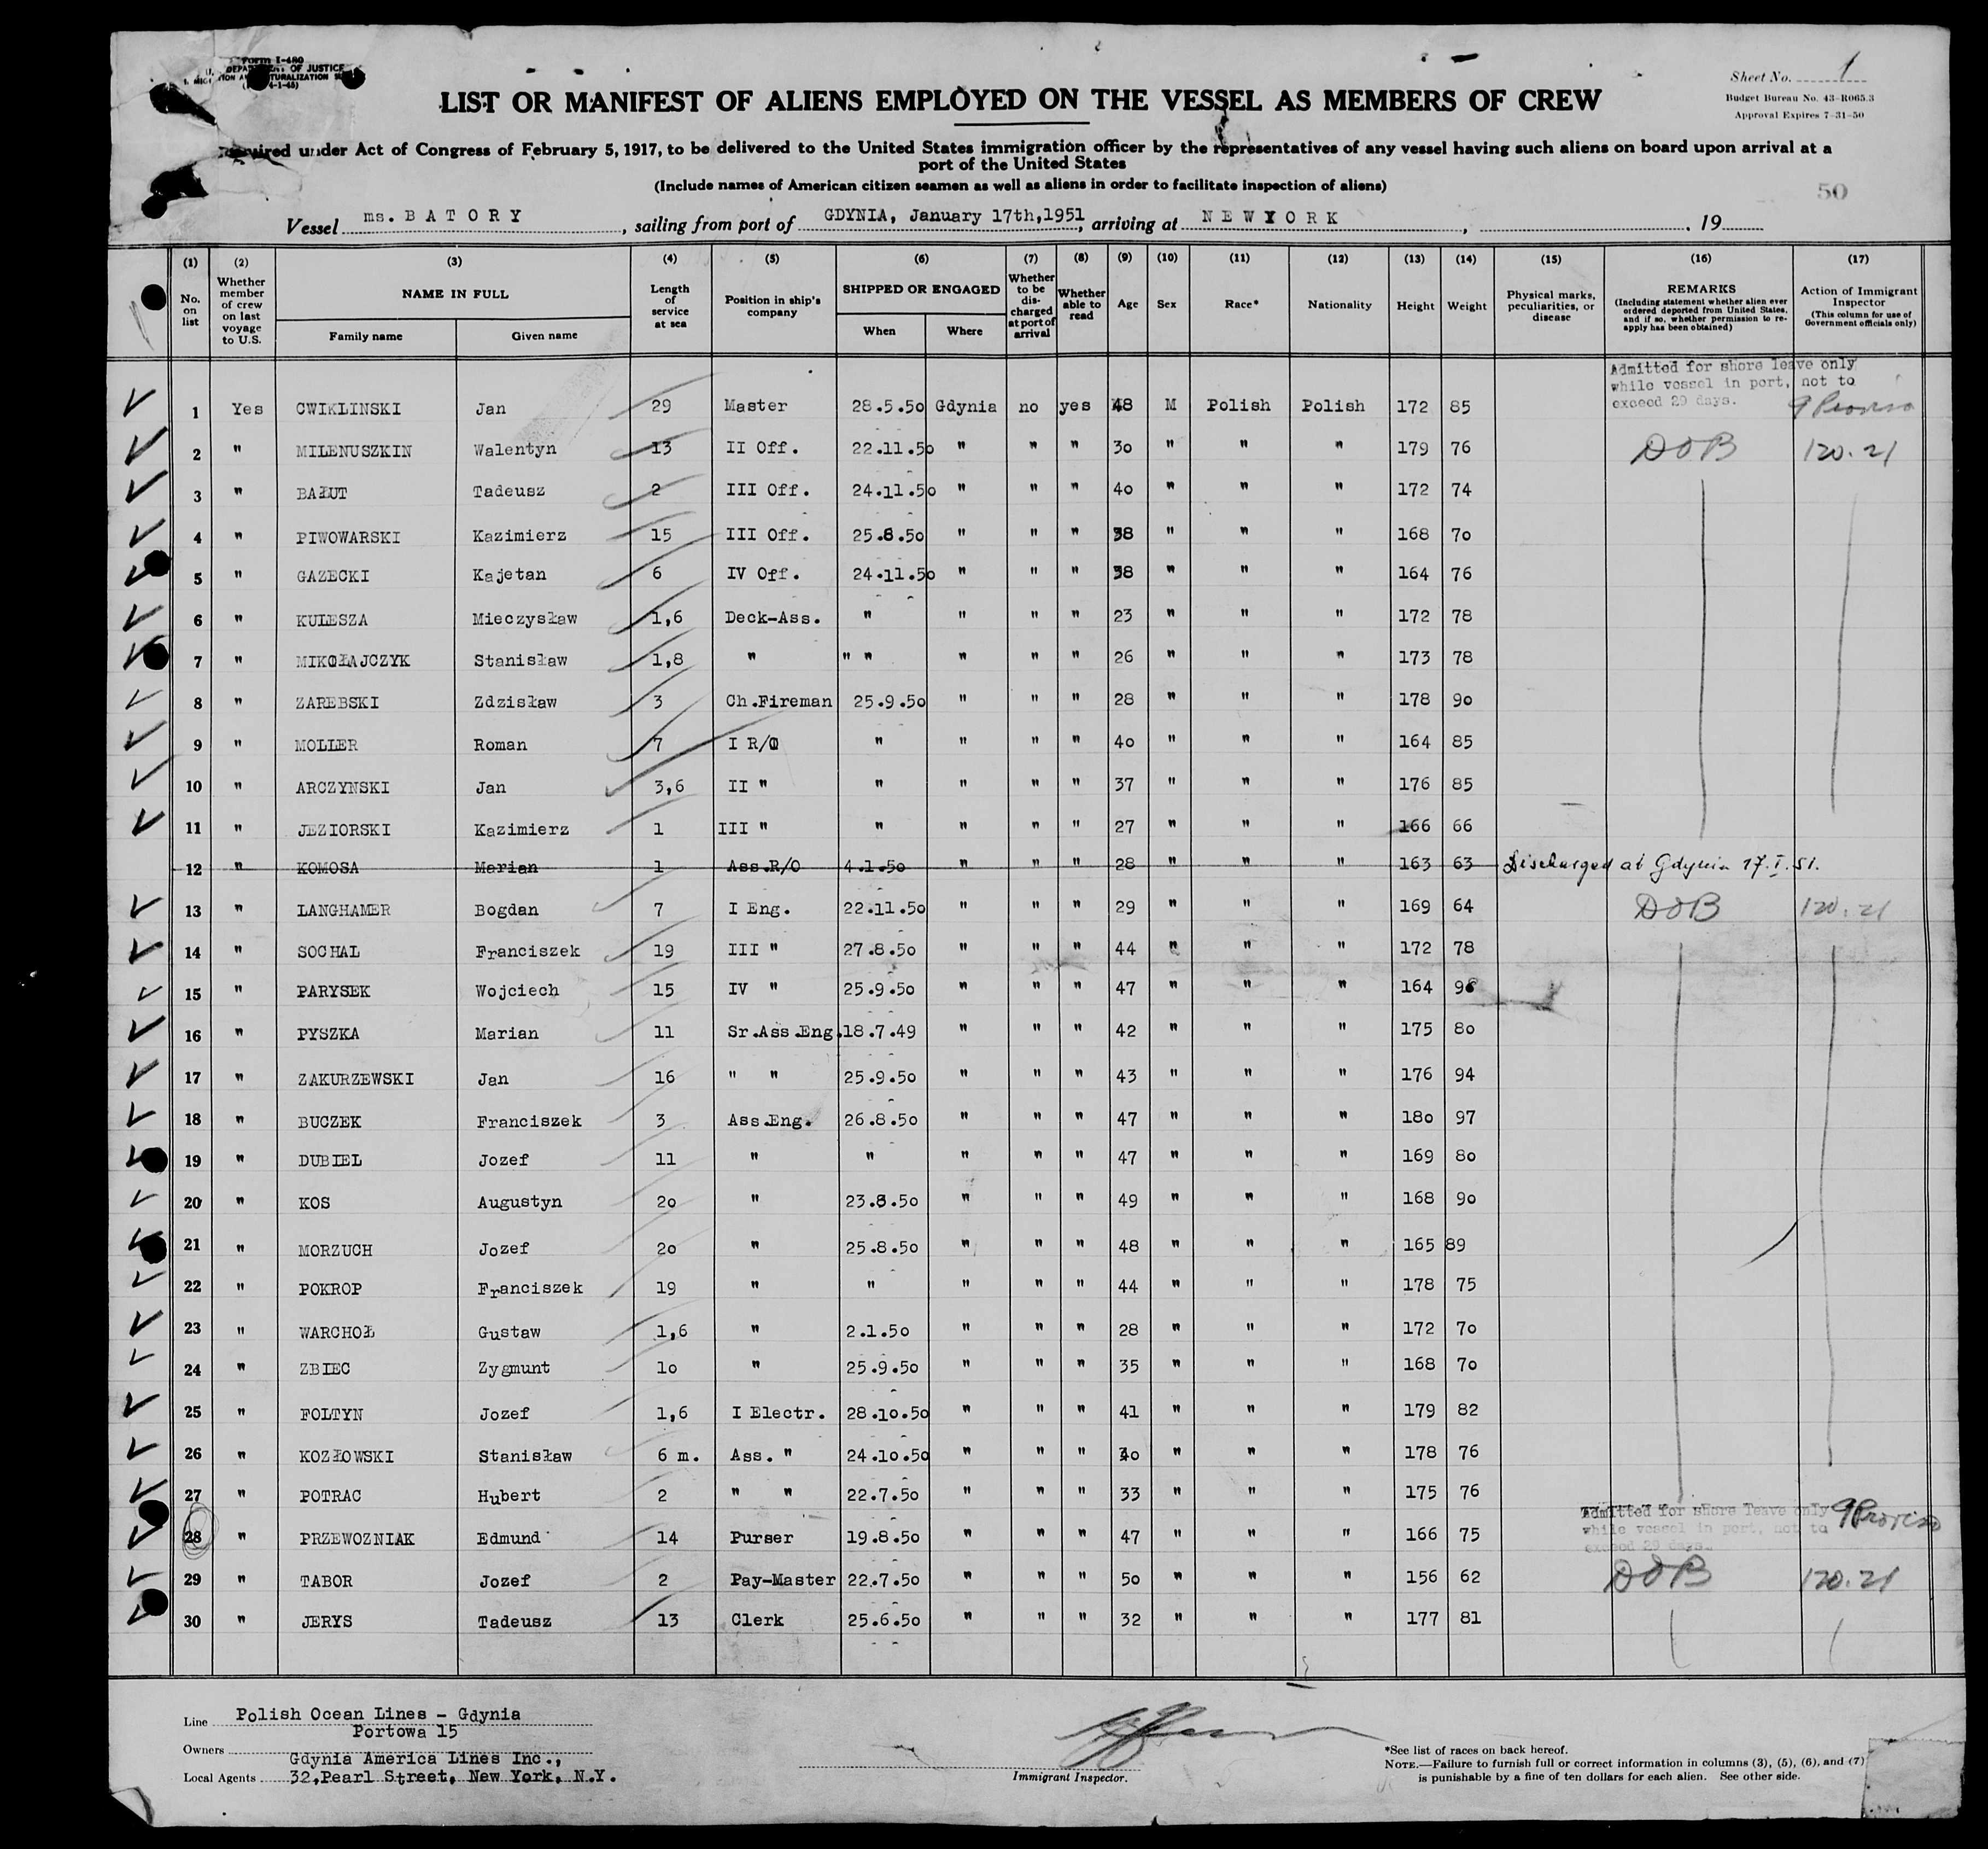 Form I-480
OF JUSTICE
TURALIZATION
4-1-48)
Sheet No. 1
Budget Bureau No. 43-R065.3
Approval Expires 7-31-50
LIST OR MANIFEST OF ALIENS EMPLOYED ON THE VESSEL AS MEMBERS OF CREW
under Act of Congress of February 5, 1917, to be delivered to the United States immigration officer by the representatives of any vessel having such aliens on board upon arrival at a
port of the United States
(Include names of American citizen seamen as well as aliens in order to facilitate inspection of aliens)
50
Vessel ms. B A T O R Y, sailing from port of GDYNIA, January 17th,1951, arriving at N E W Y O R K, , 19
(1) No. on list
(2) Whether member of crew on last voyage to U.S.
(3) NAME IN FULL
Family name
Given name
(4) Length of service at sea
(5) Position in ship's company
(6) SHIPPED OR ENGAGED
When
Where
(7) Whether to be discharged at port of arrival
(8) Whether able to read
(9) Age
(10) Sex
(11) Race*
(12) Nationality
(13) Height
(14) Weight
(15) Physical marks, peculiarities, or disease
(16) REMARKS (Including statement whether alien ever ordered deported from United States, and if so, whether permission to re-apply has been obtained)
(17) Action of Immigrant Inspector (This column for use of Government officials only)
Admitted for shore leave only
while vessel in port, not to
exceed 29 days.
1 Yes CWIKLINSKI Jan 29 Master 28.5.50 Gdynia no yes 48 M Polish Polish 172 85 9 Proviso
2 " MILENUSZKIN Walentyn 13 II Off. 22.11.50 " " " 30 " " " 179 76 DOB 120.21
3 " BAŁUT Tadeusz 2 III Off. 24.11.50 " " " 40 " " " 172 74
4 " PIWOWARSKI Kazimierz 15 III Off. 25.8.50 " " " 38 " " " 168 70
5 " GAZECKI Kajetan 6 IV Off. 24.11.50 " " " 38 " " " 164 76
6 " KULESZA Mieczysław 1,6 Deck-Ass. " " " " 23 " " " 172 78
7 " MIKOŁAJCZYK Stanisław 1,8 " " " " " " 26 " " " 173 78
8 " ZAREBSKI Zdzisław 3 Ch.Fireman 25.9.50 " " " 28 " " " 178 90
9 " MOLLER Roman 7 I R/O " " " " 40 " " " 164 85
10 " ARCZYNSKI Jan 3,6 II " " " " " 37 " " " 176 85
11 " JEZIORSKI Kazimierz 1 III " " " " " 27 " " " 166 66
12 " KOMOSA Marian 1 Ass.R/O 4.1.50 " " " 28 " " " 163 63 Discharged at Gdynia 17.I.51.
13 " LANGHAMER Bogdan 7 I Eng. 22.11.50 " " " 29 " " " 169 64 DOB 120.21
14 " SOCHAL Franciszek 19 III " 27.8.50 " " " 44 " " " 172 78
15 " PARYSEK Wojciech 15 IV " 25.9.50 " " " 47 " " " 164
16 " PYSZKA Marian 11 Sr.Ass.Eng.18.7.49 " " " 42 " " " 175 80
17 " ZAKURZEWSKI Jan 16 " " 25.9.50 " " " 43 " " " 176 94
18 " BUCZEK Franciszek 3 Ass.Eng. 26.8.50 " " " 47 " " " 180 97
19 " DUBIEL Jozef 11 " " " " " 47 " " " 169 80
20 " KOS Augustyn 20 " 23.8.50 " " " 49 " " " 168 90
21 " MORZUCH Jozef 20 " 25.8.50 " " " 48 " " " 165 89
22 " POKROP Franciszek 19 " " " " " 44 " " " 178 75
23 " WARCHOŁ Gustaw 1,6 " 2.1.50 " " " 28 " " " 172 70
24 " ZBIEC Zygmunt 10 " 25.9.50 " " " 35 " " " 168 70
25 " FOLTYN Jozef 1,6 I Electr. 28.10.50 " " " 41 " " " 179 82
26 " KOZŁOWSKI Stanisław 6 m. Ass. " 24.10.50 " " " 30 " " " 178 76
27 " POTRAC Hubert 2 " " 22.7.50 " " " 33 " " " 175 76
Admitted for shore leave only
while vessel in port, not to
exceed 29 days.
28 " PRZEWOZNIAK Edmund 14 Purser 19.8.50 " " " 47 " " " 166 75 9 Proviso
29 " TABOR Jozef 2 Pay-Master 22.7.50 " " " 50 " " " 156 62 DOB 120.21
30 " JERYS Tadeusz 13 Clerk 25.6.50 " " " 32 " " " 177 81
Line Polish Ocean Lines - Gdynia
Portowa 15
Owners
Gdynia America Lines Inc.,
Local Agents 32,Pearl Street, New York, N.Y.
Immigrant Inspector.
*See list of races on back hereof.
NOTE.—Failure to furnish full or correct information in columns (3), (5), (6), and (7)
is punishable by a fine of ten dollars for each alien. See other side.